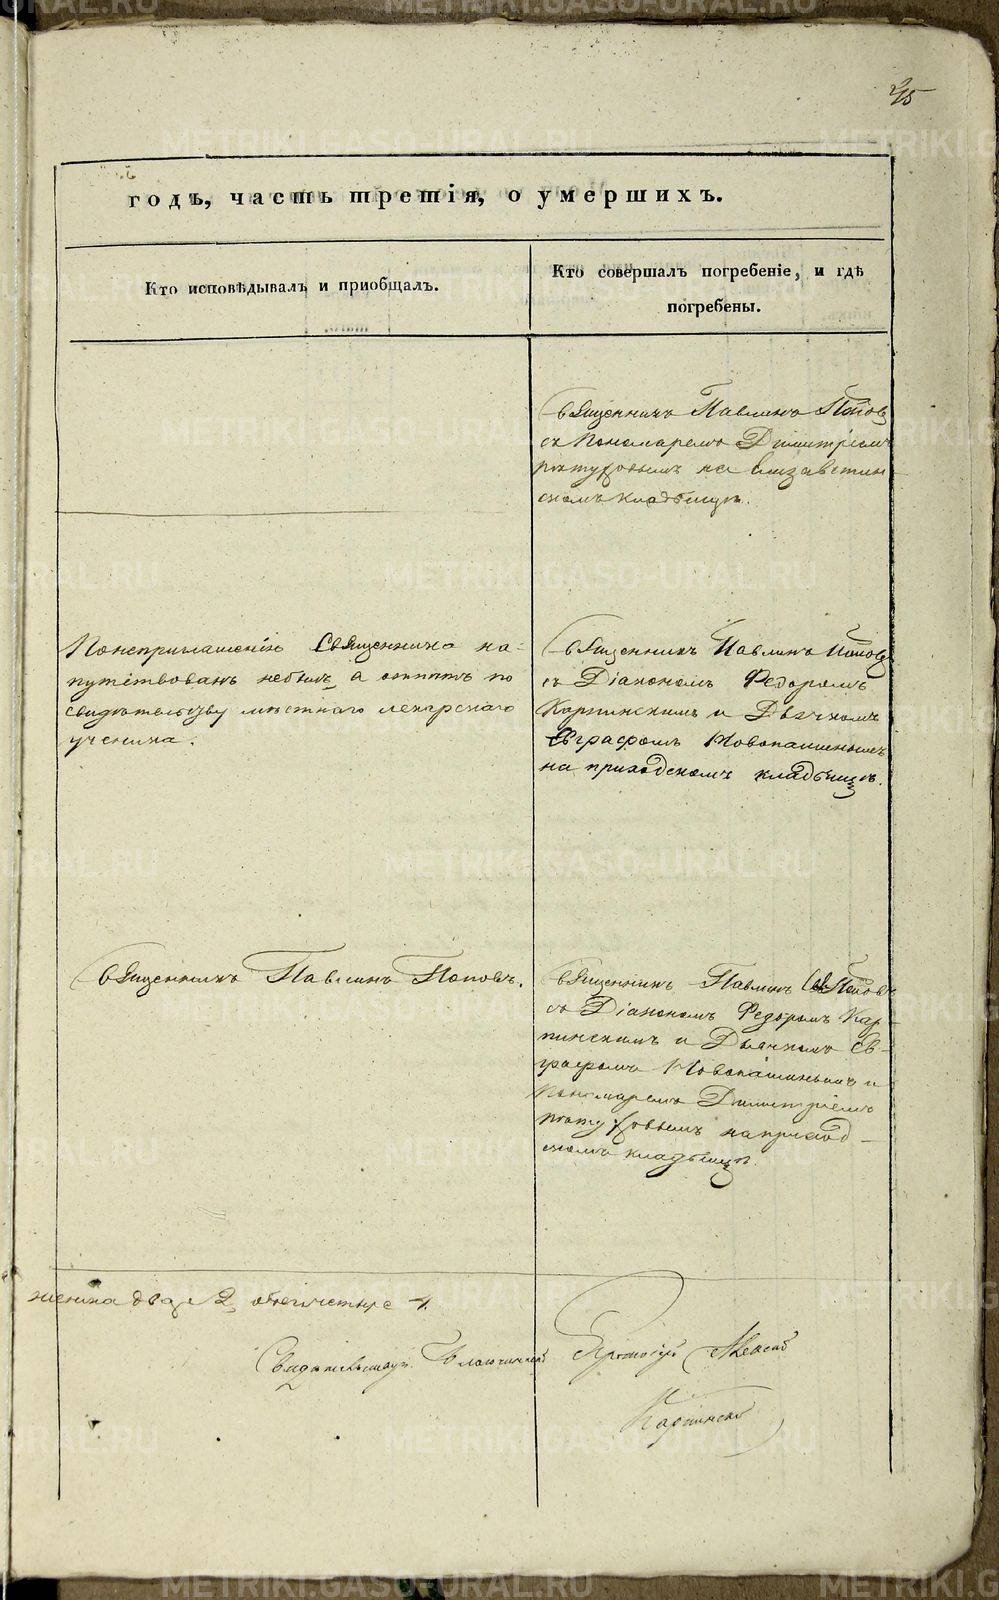 годъ, часть третія, о умершихъ.
Кто исповѣдывалъ и пріобщалъ.
Кто совершалъ погребеніе, и гдѣ
погребены.
Священникъ Павлинъ Поповъ
съ Пономаремъ Димитріемъ
на Елизаветин
скомъ кладбищѣ.
По неприглашенію Священника на-
путствованъ небылъ, а отпѣтъ по
свидѣтельству мѣстнаго лекарскаго
ученика.
Священникъ Павлинъ Поповъ
съ Діакономъ Федоромъ
Карпинскимъ и Дьячкомъ
Евграфомъ Новопашеннымъ
на приходскомъ кладбищѣ.
Священникъ Павлинъ Поповъ.
Священникъ Павлинъ Поповъ
съ Діакономъ Федоромъ Кар-
пинскимъ и Дьячкомъ Ев-
графомъ Новопашеннымъ и
Пономаремъ Димитріемъ
на приход-
скомъ кладбищѣ.
2, обоего четыре 4.
Благочинный Протоіерей
Карпинскій
METRIKI.GASO-URAL.RU